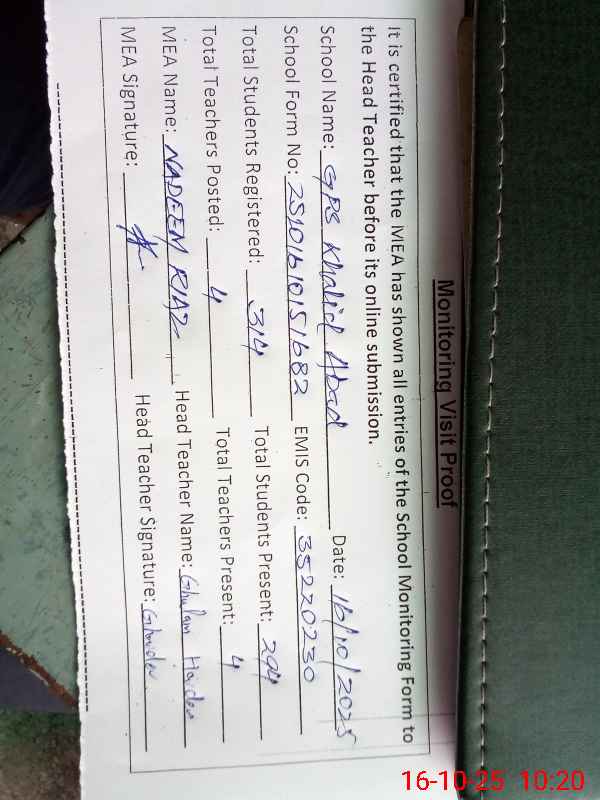 Monitoring Visit Proof
It is certified that the MEA has shown all entries of the School Monitoring Form to
the Head Teacher before its online submission.
School Name: GPS Khalid Abad Date: 16/10/2025
School Form No: 25101610151682 EMIS Code: 35220230
Total Students Registered: 314 Total Students Present: 294
Total Teachers Posted: 4 Total Teachers Present: 4
MEA Name: NADEEM RIAZ Head Teacher Name: Ghulam Haider
MEA Signature: Head Teacher Signature: Ghaider
16-10-25 10:20